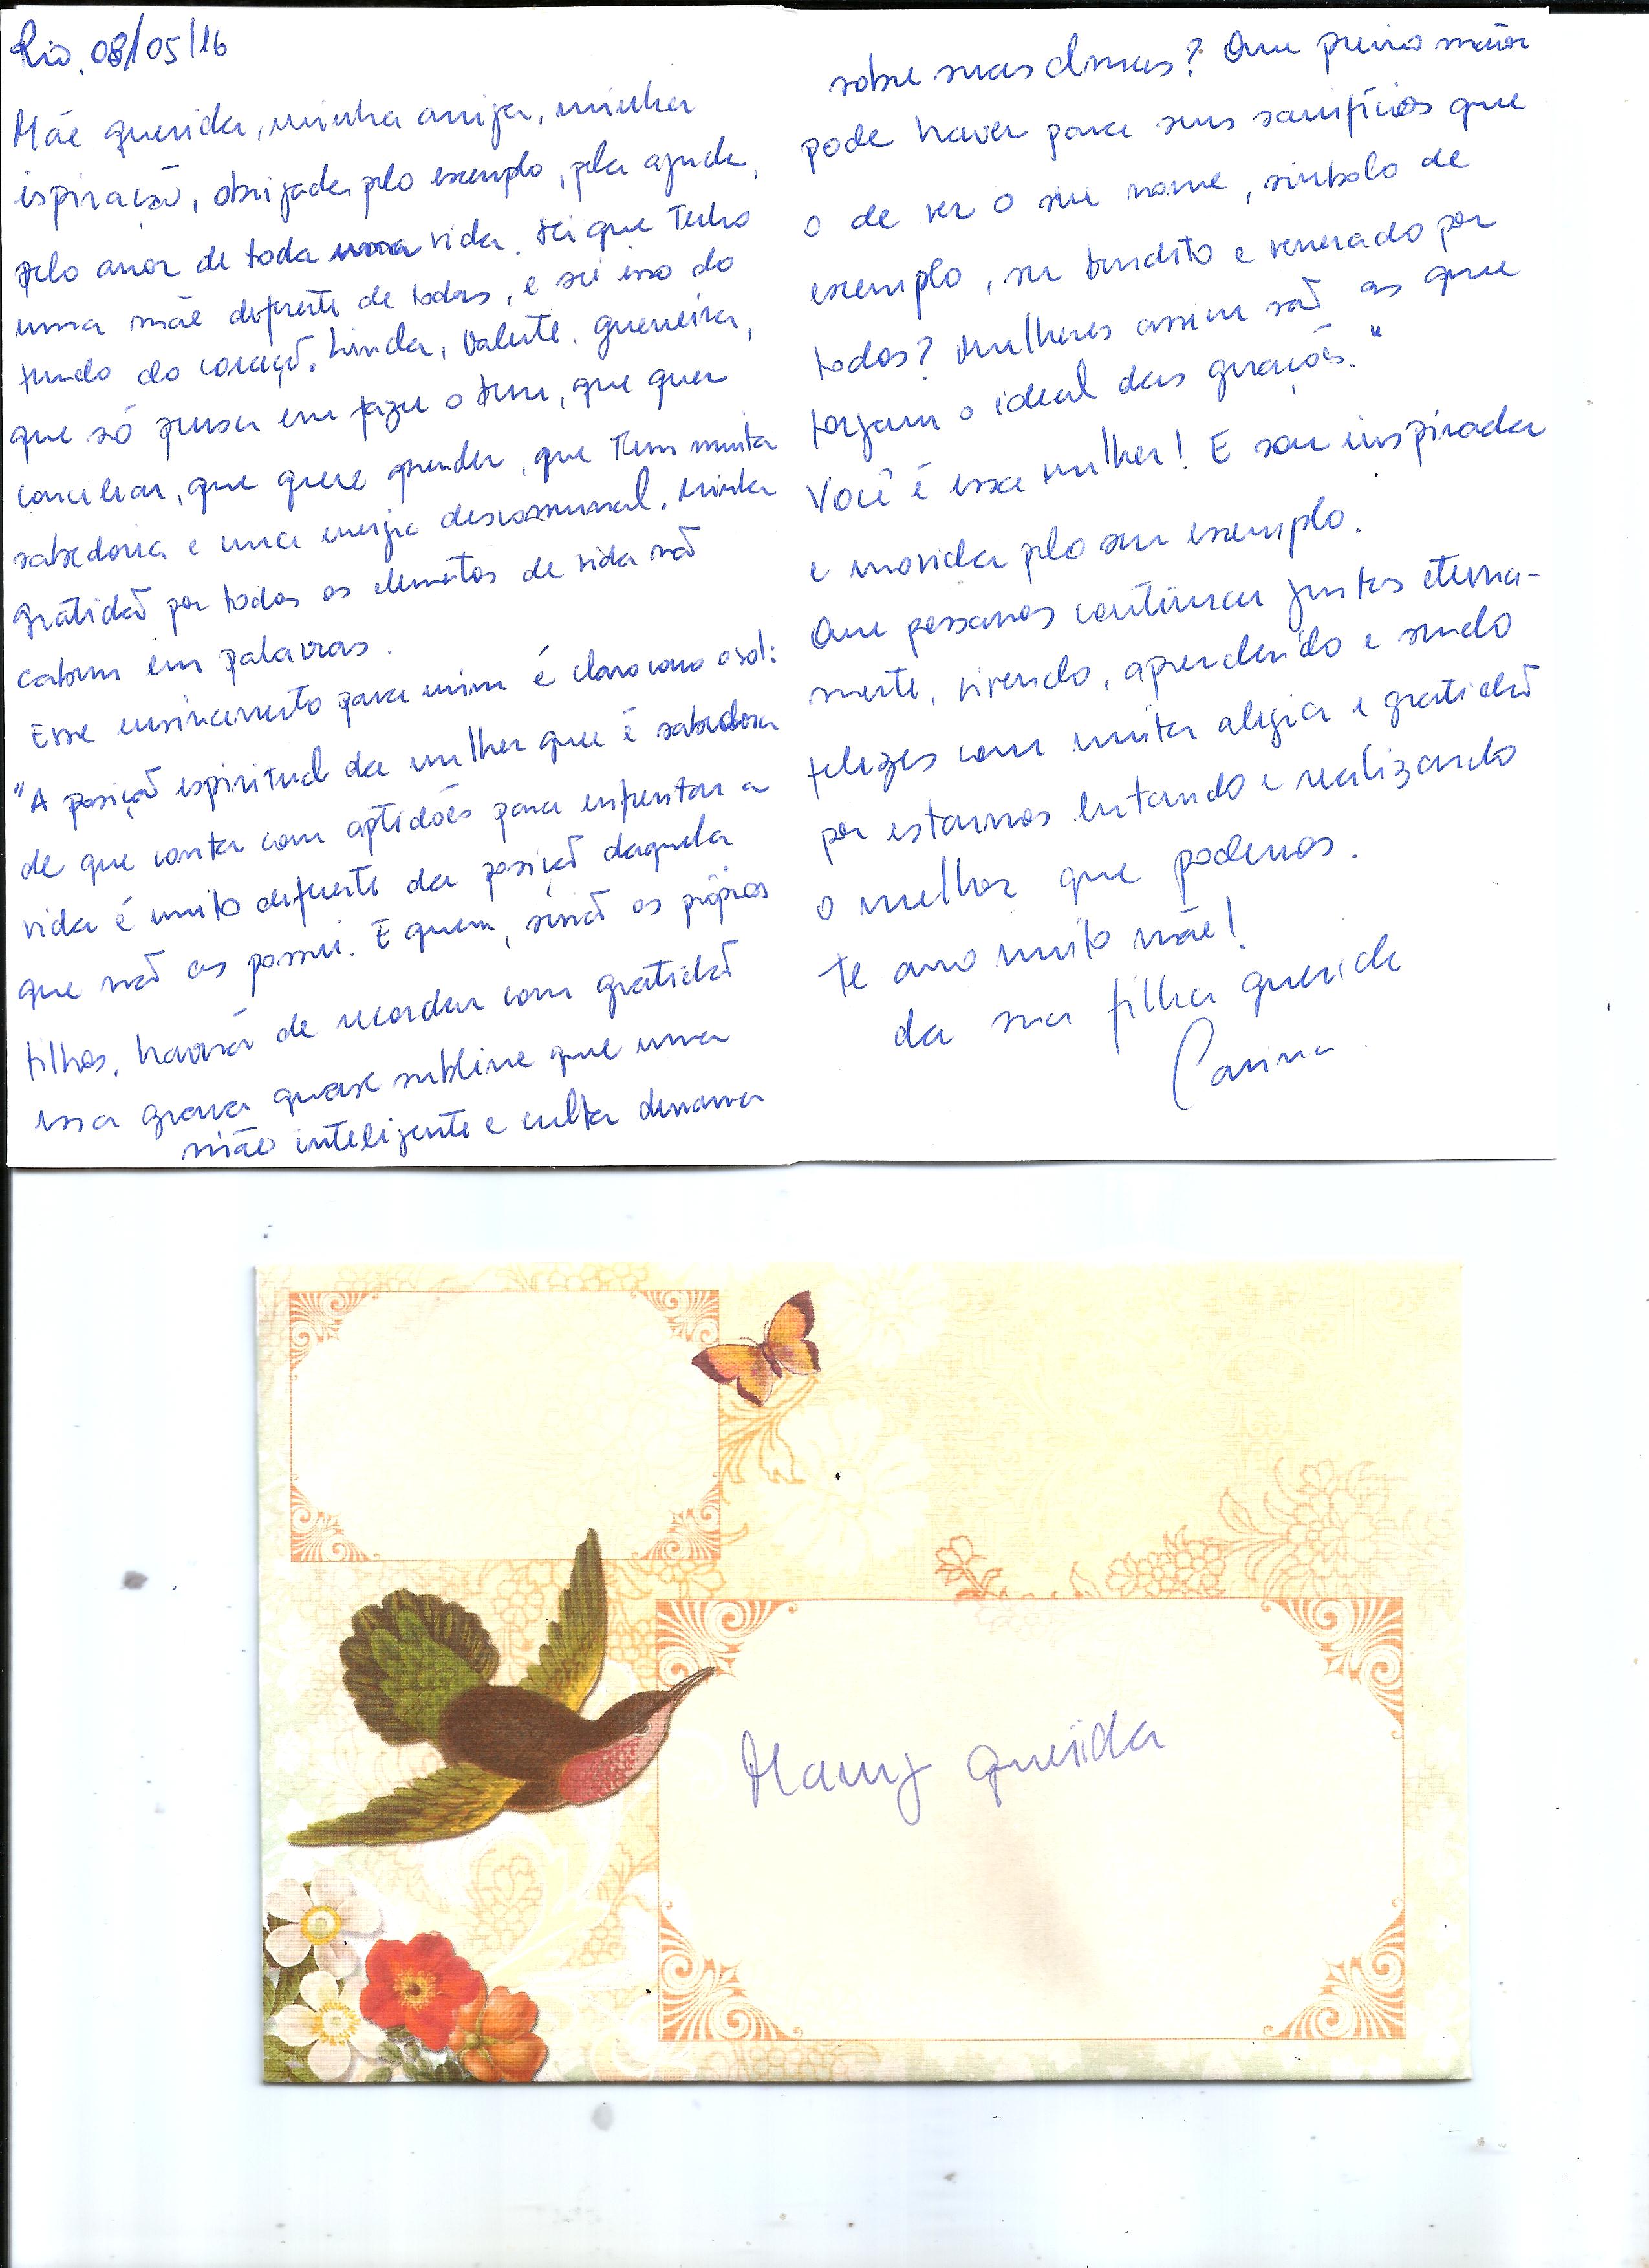 Rio, 08/05/16
Mãe querida, minha amiga, minha
ispiração, obrigada pelo exemplo, pela ajuda,
pelo amor de toda uma vida. Sei que tenho
uma mãe diferente de todas, e sei isso do
fundo do coração. Linda, valente, guerreira,
que só pensa em fazer o bem, que quer
conciliar, que quere aprender, que tem muita
sabedoria e uma energia descomunal. Minha
gratidão por todos os elementos de vida não
cabem em palavras.
Esse ensinamento para mim é claro como o sol:
"A posição espiritual da mulher que é sabedora
de que conta com aptidões para enfrentar a
vida é muito diferente da posição daquela
que não as possui. E quem, sinão os próprios
filhos, haverá de recordar com gratidão
essa graça quase sublime que uma
mãe inteligente e culta derrama
sobre suas almas? Que prêmio maior
pode haver para seus sacrifícios que
o de ver o seu nome, símbolo de
exemplo, ser bendito e venerado por
todos? Mulheres assim são as que
forjam o ideal das gerações."
Você é essa mulher! E sou inspirada
e movida pelo seu exemplo.
Que possamos continuar juntas eterna-
mente, vivendo, aprendendo e sendo
felizes com muita alegria e gratidão
por estarmos lutando e realizando
o melhor que podemos.
Te amo muito mãe!
da sua filha querida
Carina
Mamy querida